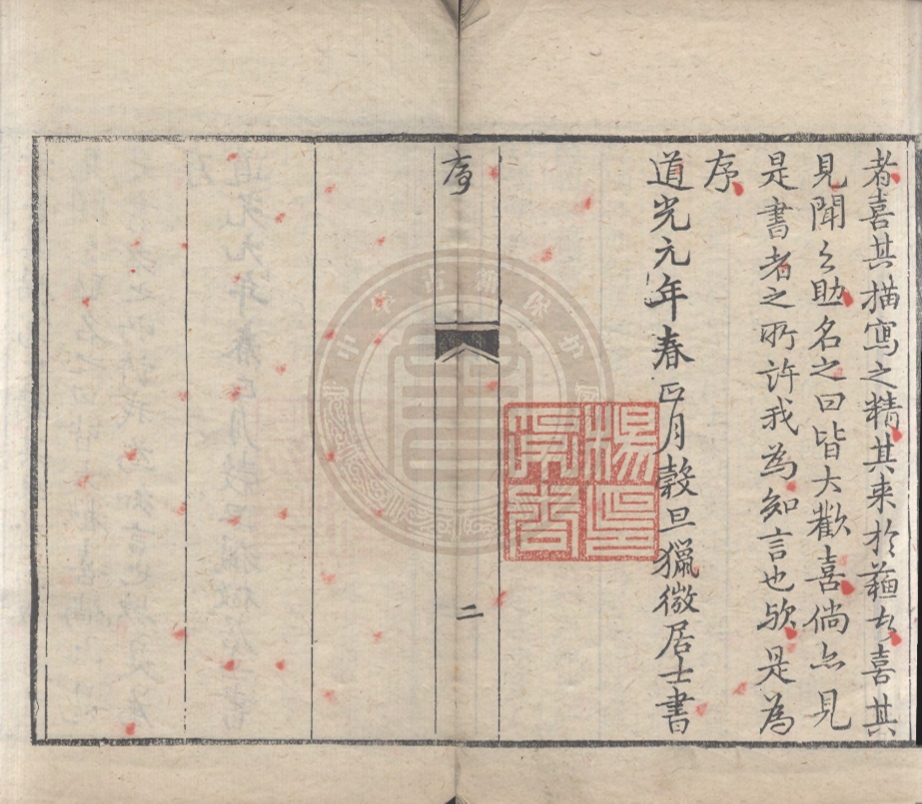 者喜其描寫之精其来於蘓者喜其
見聞之助名之曰皆大歡喜倘亦見
是書者之所許我為知言也欤是為
序
道光元年春正月穀旦獵微居士書
序
二